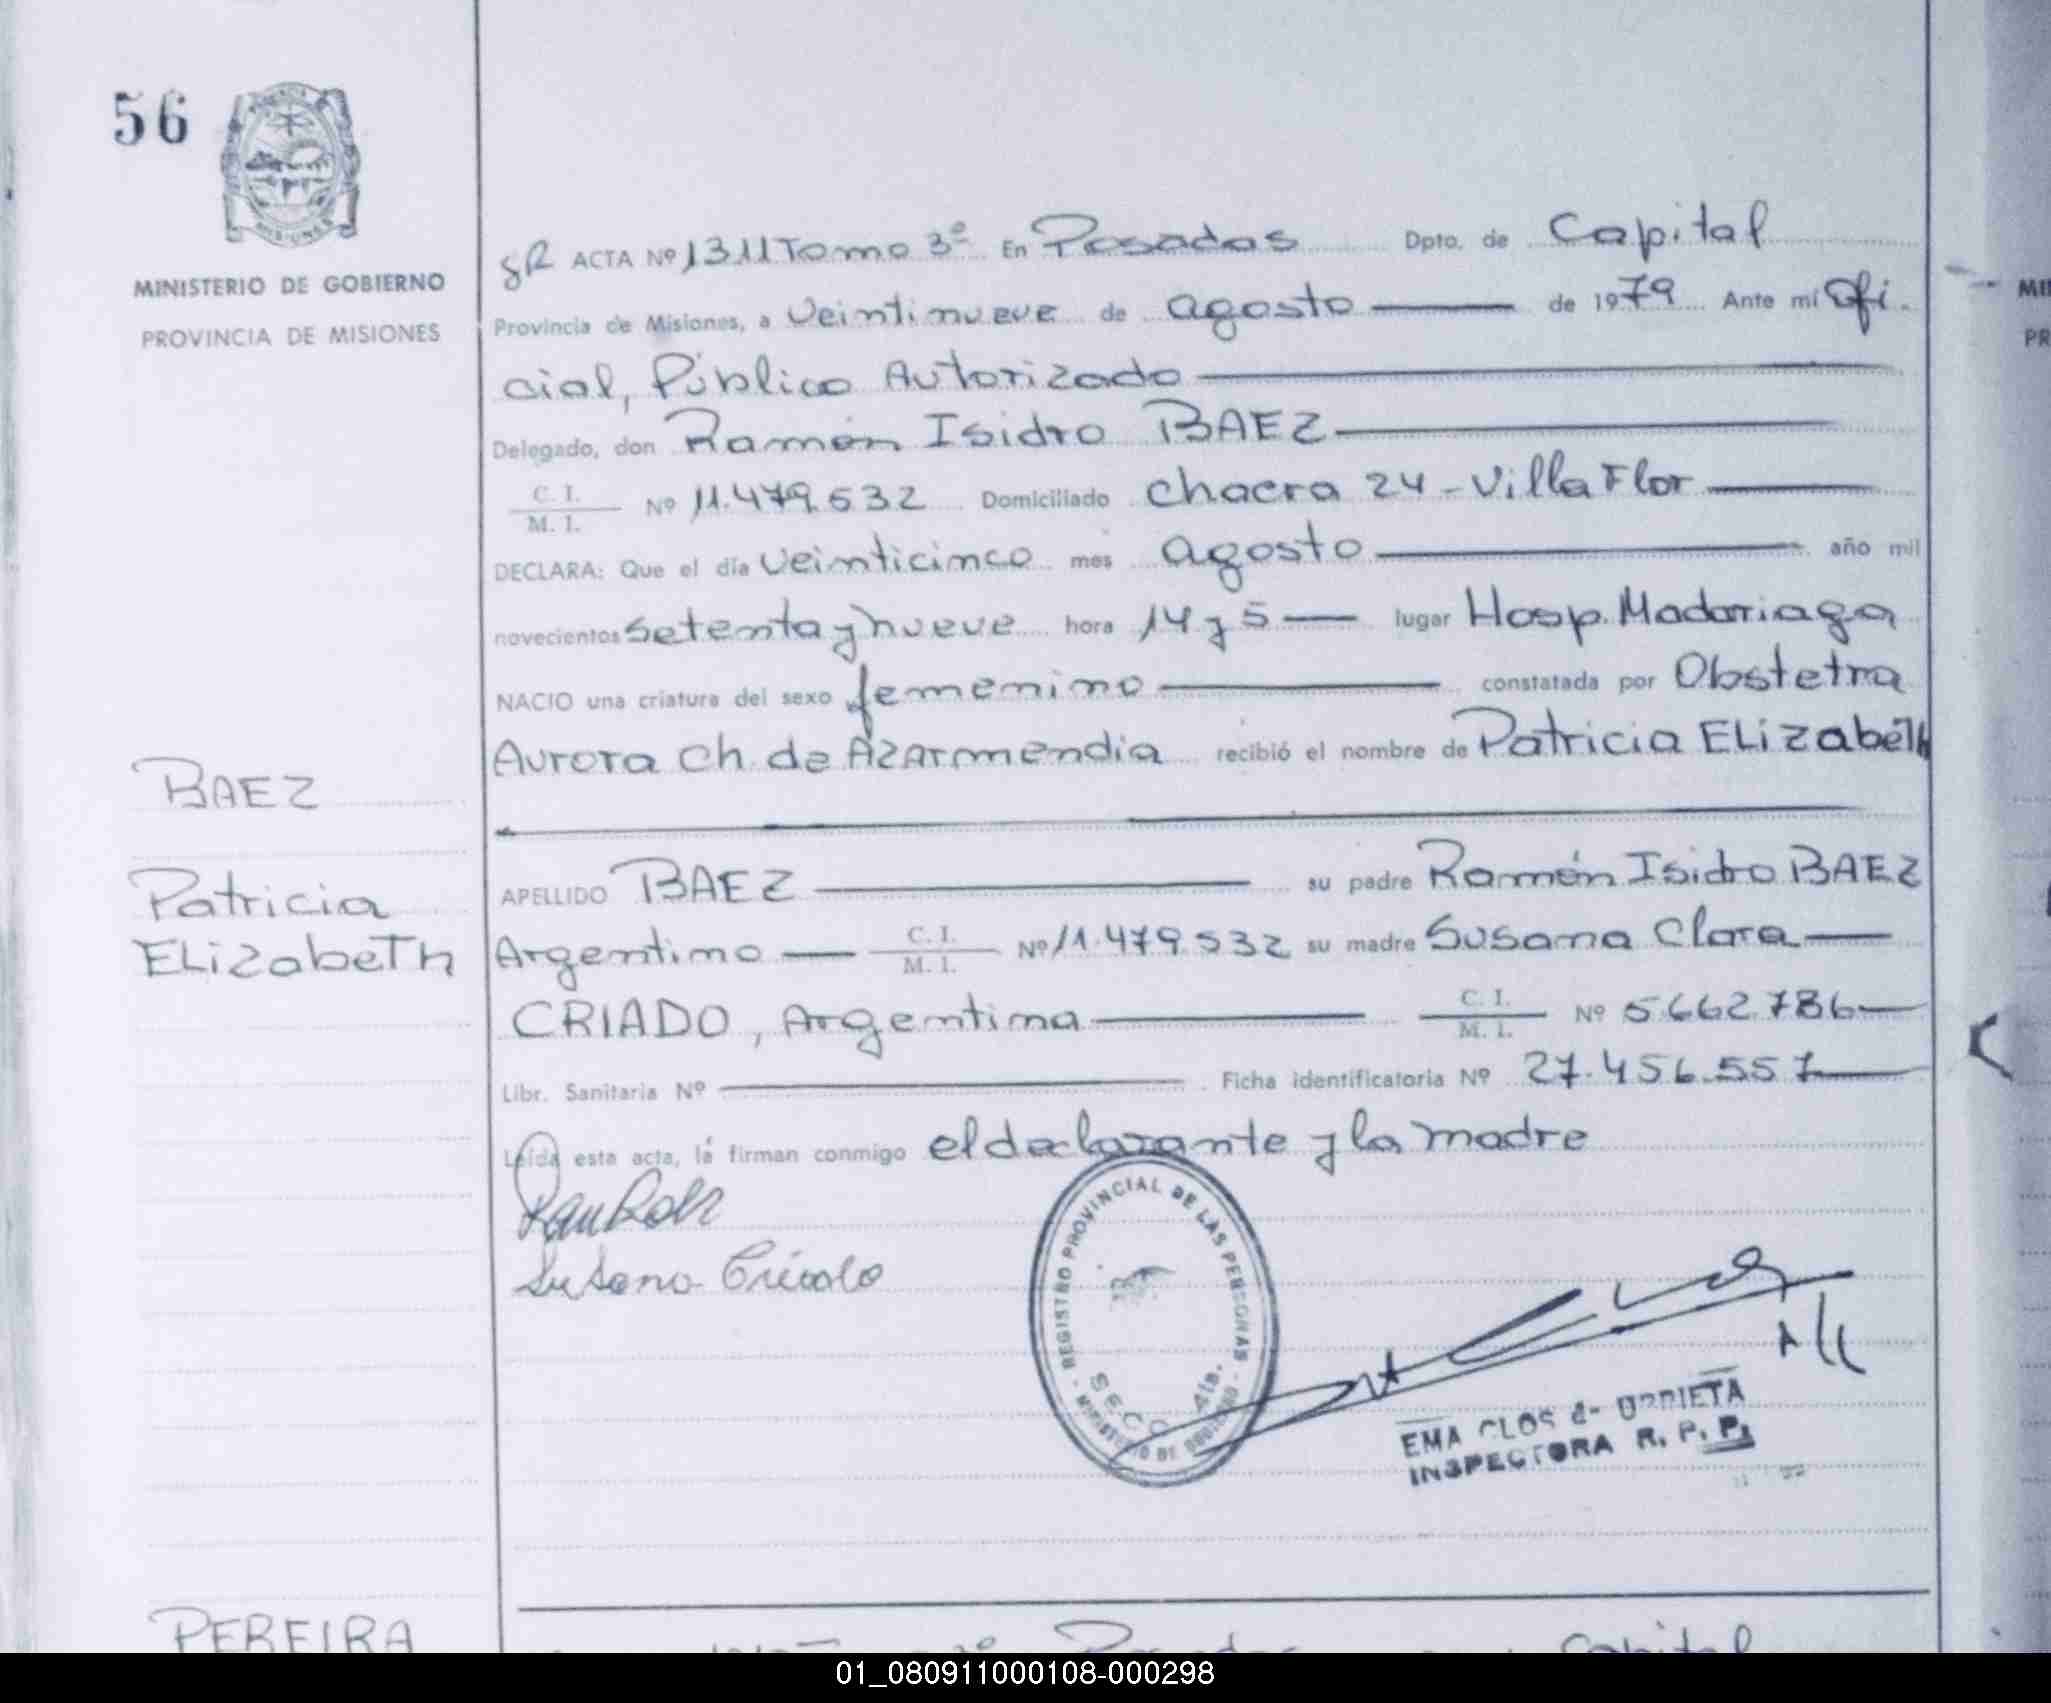 56
MINISTERIO DE GOBIERNO
PROVINCIA DE MISIONES
gR ACTA Nº 1311 Tomo 3º En Posadas Dpto. de Capital
Provincia de Misiones, a Veintinueve de agosto de 1979 Ante mí Ofi-
cial, Público Autorizado
Delegado, don Ramón Isidro BAEZ
C. I.
M. I. Nº 11.479.532 Domiciliado chacra 24 - Villa Flor
DECLARA: Que el día Veinticinco mes agosto año mil
novecientos setenta y nueve hora 14 y 5 lugar Hosp. Madariaga
NACIO una criatura del sexo femenino constatada por Obstetra
Aurora Ch. de Azarmendia recibió el nombre de Patricia ELizabeth
BAEZ
Patricia
ELizabeTh
APELLIDO BAEZ su padre Ramón Isidro BAEZ
Argentino C. I. M. I. Nº 11.479.532 su madre Susana Clara
CRIADO, Argentina C. I. M. I. Nº 5.662.786
Libr. Sanitaria Nº Ficha identificatoria Nº 27.456.557
Leída esta acta, la firman conmigo el declarante y la madre
Susana Criado
REGISTRO PROVINCIAL DE LAS PERSONAS - MINISTERIO DE GOBIERNO -
SECC. 4ta.
EMA CLOS de URRIETA
INSPECTORA R. P. P.
PEREIRA
Capital
MI
PR
01_080911000108-000298